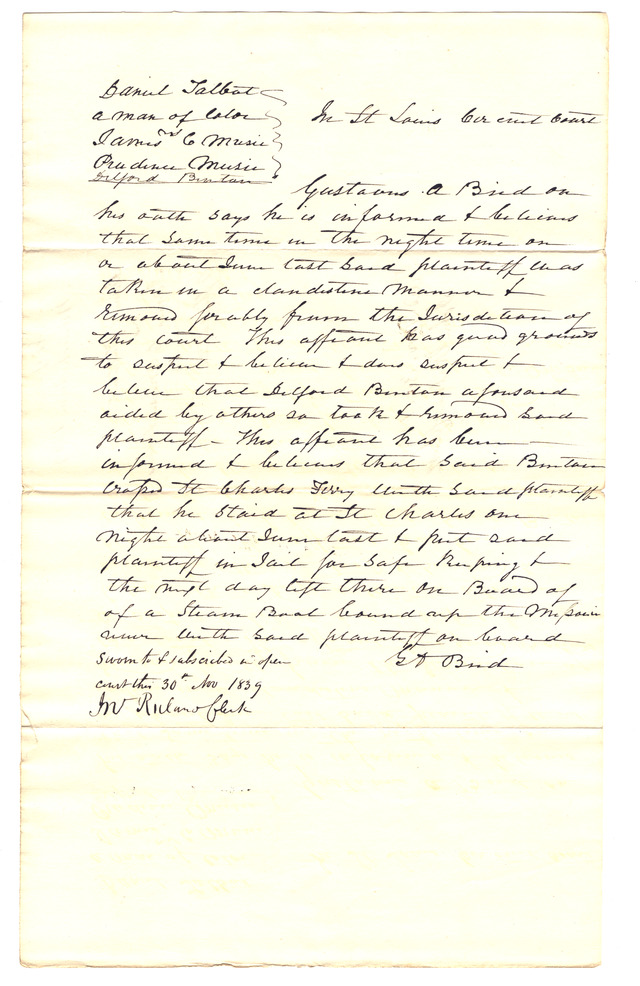 Daniel Talbot
a man of Color
vs
James C Music
Prudence Music
Delford Benton
In St Louis Circuit Court
Gustavus A Bird on
his oath says he is informed & believes
that some time in the night time on
or about June last said plaintiff was
taken in a clandestine manner &
removed forably from the Jurisdiction of
this court This affiant has good grounds
to suspect & believe & does suspect &
believe that Delford Benton aforesaid
aided by others so took & removed said
plaintiff – This affiant has been
informed & believes that said Benton
crossed St Charles Ferry with said plaintiff
that he staid at St Charles one
night about June last & put said
plaintiff in Jail for safe keeping &
the next day left there on Board of
of a Steam Boat bound up the Missouri
river with said plaintiff on board
Sworn to & subscribed in open
court this 30th Nov 1839
GA Bird
Jno Ruland Clerk